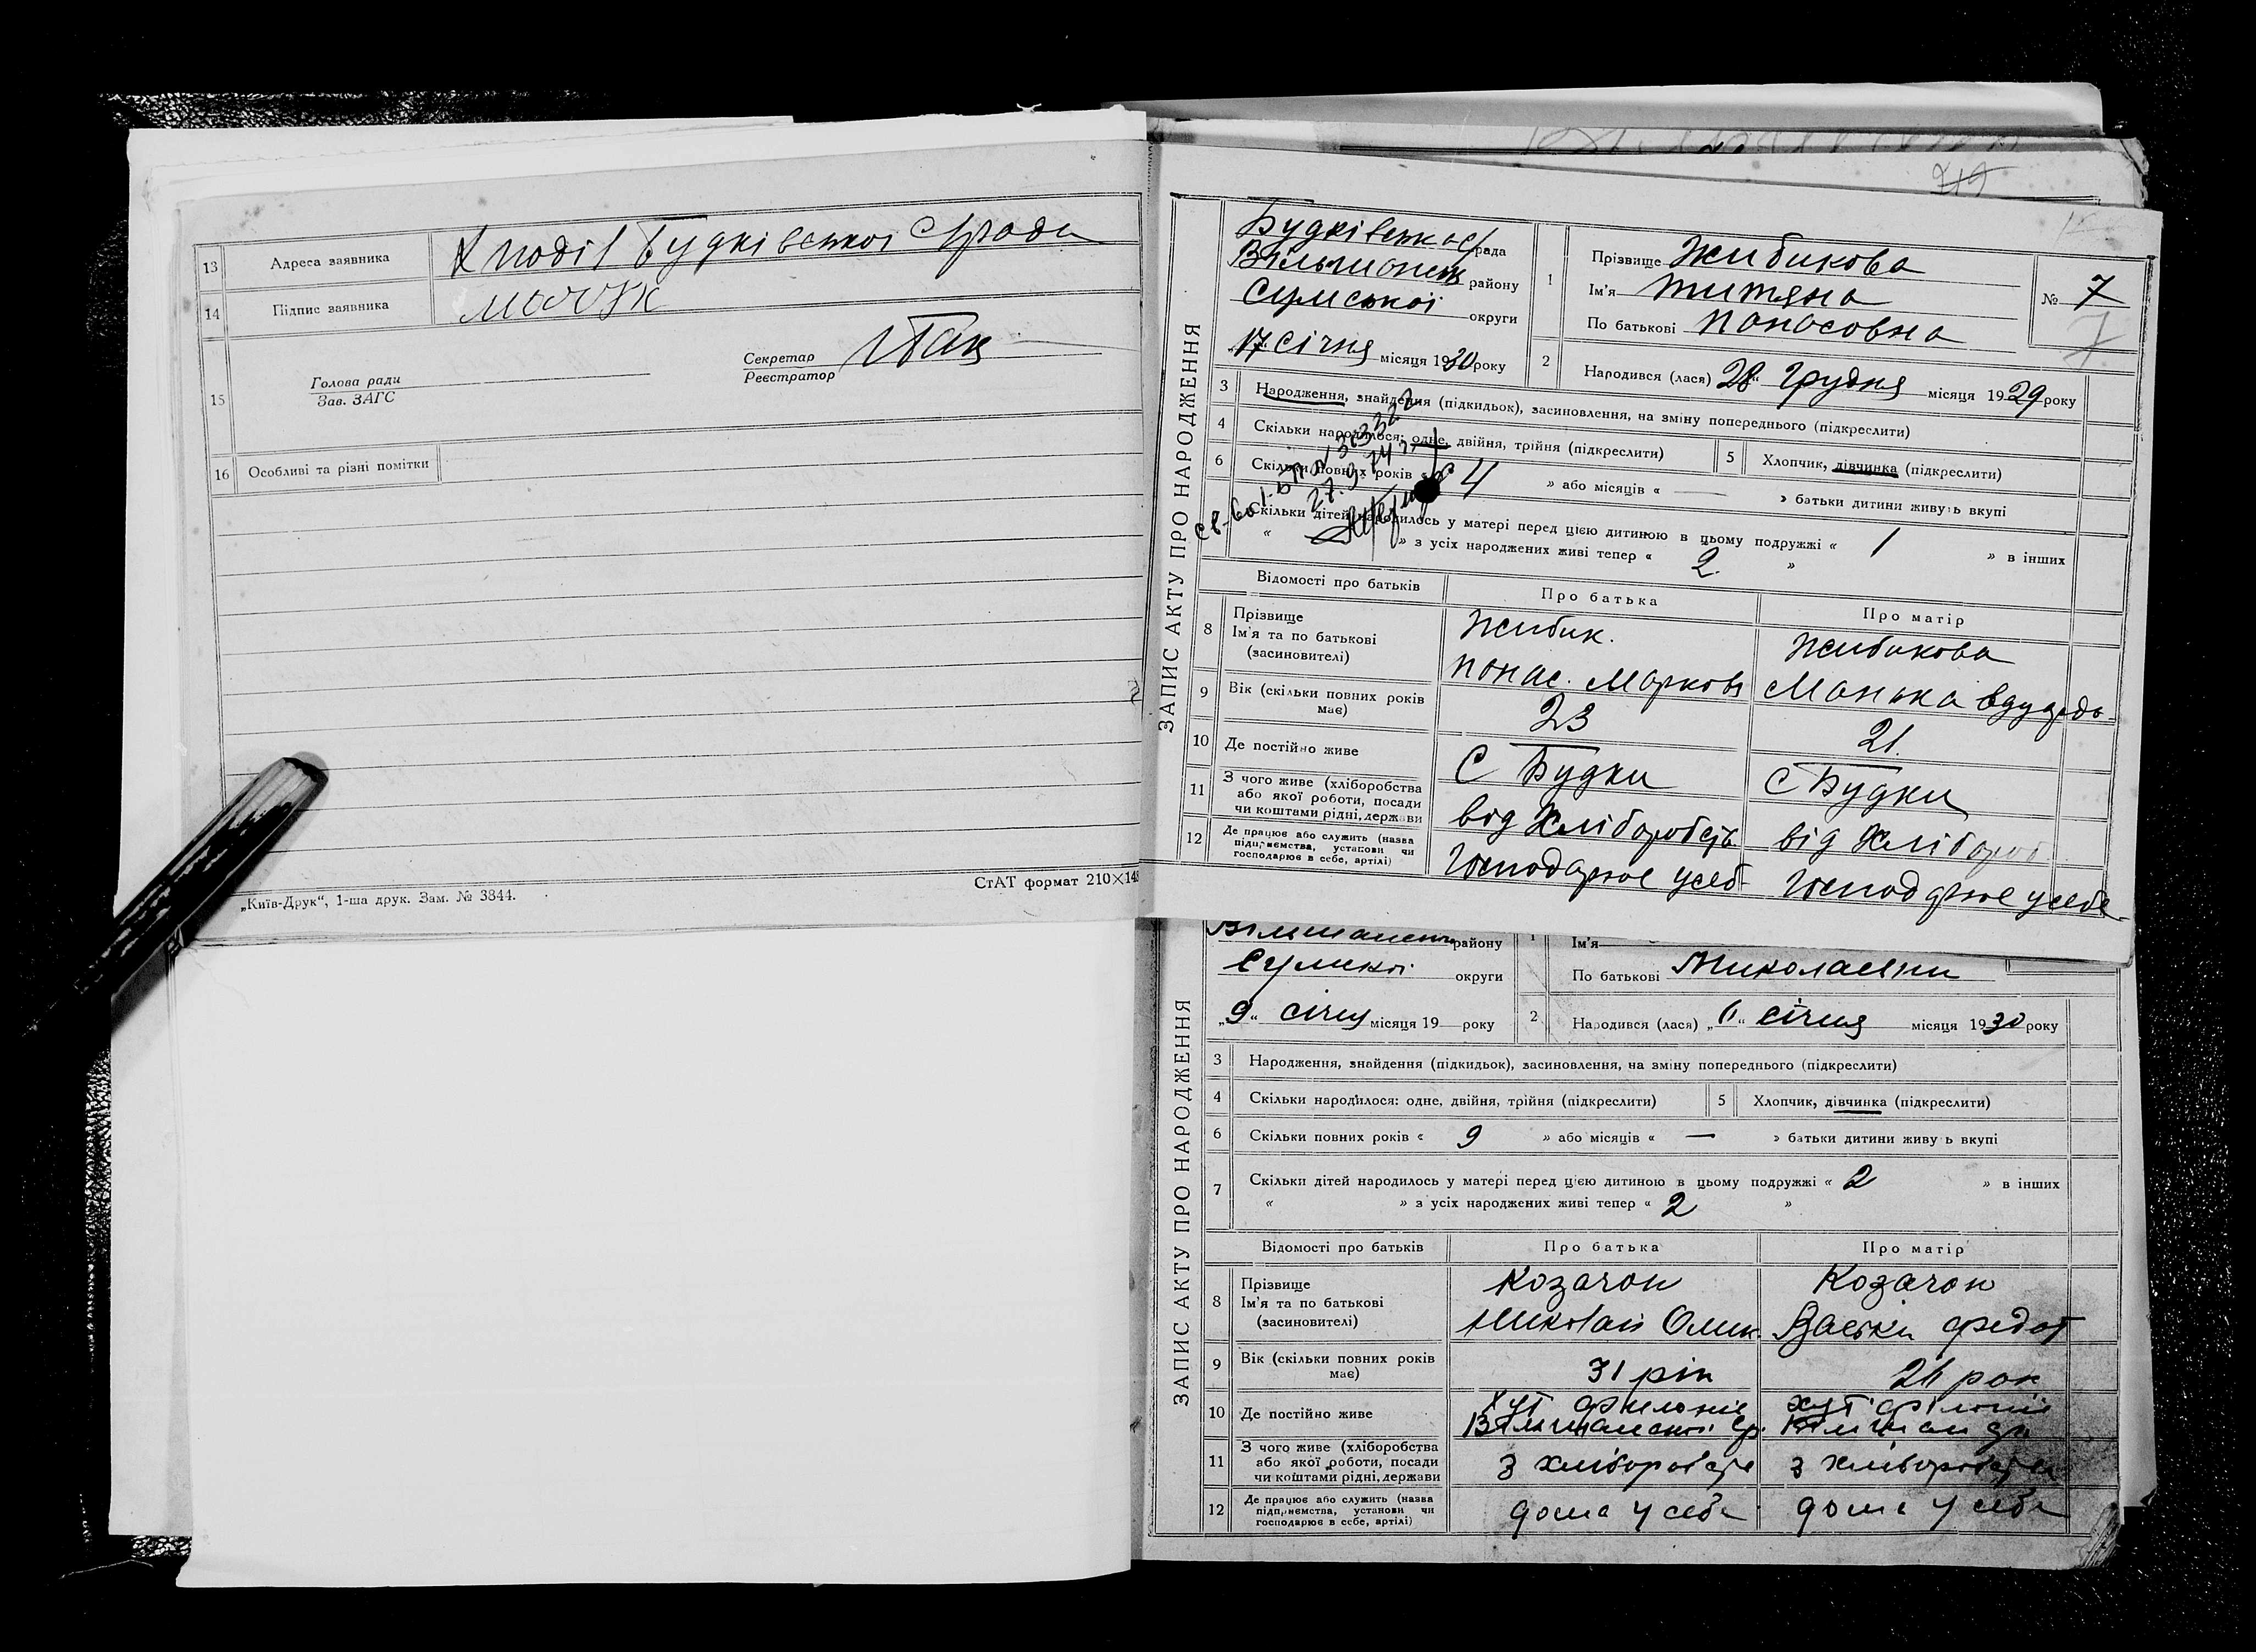 13 Адреса заявника Х поділ Будківської С/ради
14 Підпис заявника
15 Голова ради
Зав. ЗАГС
Секретар
Реєстратор
16 Особливі та різні помітки
„Київ-Друк“, 1-ша друк. Зам. № 3844.
СтАТ формат 210×148
ЗАПИС АКТУ ПРО НАРОДЖЕННЯ
Будківська с/рада
Вільшанськ району
Сумської округи
„17“ Січня місяця 1930 року
1 Прізвище Жибикова
Ім'я Титяна
По батькові Панасовна
№ 7
7
2 Народився (лася) „28“ Грудня місяця 1929 року
3 Народження, знайдення (підкидьок), засиновлення, на зміну попереднього (підкреслити)
4 Скільки народилося: одне, двійня, трійня (підкреслити)
5 Хлопчик, дівчинка (підкреслити)
6 Скільки повних років « 4 » або місяців « — » батьки дитини живуть вкупі
Скільки дітей народилось у матері перед цією дитиною в цьому подружжі « 1 » в інших
« » з усіх народжених живі тепер « 2 »
Відомості про батьків Про батька Про матір
8 Прізвище
Ім'я та по батькові
(засиновителі)
Жибик.
Панас. Марков
Жибикова
Манька
9 Вік (скільки повних років має) 23 21
10 Де постійно живе С Будки С Будки
11 З чого живе (хліборобства
або якої роботи, посади
чи коштами рідні, держави
від Хліборобств від Хлібороб
12 Де працює або служить (назва
підприємства, установи чи
господарює в себе, артілі)
Господарює усеб Господарює усебе
ЗАПИС АКТУ ПРО НАРОДЖЕННЯ
Вільшанськ району
Сумської округи
„9“ січня місяця 19 року
1 Ім'я
По батькові Миколаевни
2 Народився (лася) січня місяця 1930 року
3 Народження, знайдення (підкидьок), засиновлення, на зміну попереднього (підкреслити)
4 Скільки народилося: одне, двійня, трійня (підкреслити)
5 Хлопчик, дівчинка (підкреслити)
6 Скільки повних років « 9 » або місяців « — » батьки дитини живуть вкупі
7 Скільки дітей народилось у матері перед цією дитиною в цьому подружжі « 2 » в інших
« » з усіх народжених живі тепер « 2 »
Відомості про батьків Про батька Про матір
8 Прізвище
Ім'я та по батькові
(засиновителі)
Козачок
Николай Олик.
Козачок
Васьки Федот
9 Вік (скільки повних років має) 31 рік
10 Де постійно живе
хут
хут
11 З чого живе (хліборобства
або якої роботи, посади
чи коштами рідні, держави
з хліборобств з хліборобств
12 Де працює або служить (назва
підприємства, установи чи
господарює в себе, артілі)
дома у себе дома у себе